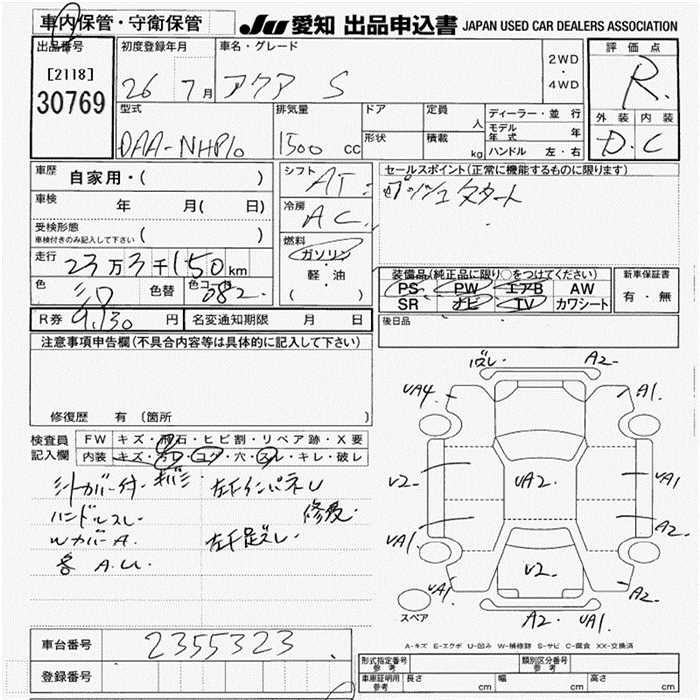 車内保管・守衛保管
JU 愛知 出品申込書 JAPAN USED CAR DEALERS ASSOCIATION
出品番号
[2118]
30769
初度登録年月
26 7月
車名・グレード
アクア S
2WD
・
4WD
評価点
R
外装 内装
D. C
型式
DAA-NHP10
排気量
1500 cc
ドア
形状
定員
人
積載
kg
ディーラー・並行
モデル年式 年
ハンドル 左・右
車歴
自家用・( )
車検
年 月( 日)
受検形態
車検付きのみ記入して下さい ( )
走行
23万3千150km
色
シロ
色替
色コード
082
シフト
AT
冷房
AC
燃料
ガソリン
・
軽・油
( )
セールスポイント(正常に機能するものに限ります)
プッシュスタート
装備品(純正品に限り○をつけてください)
PS PW エアB AW
SR ナビ TV カワシート
新車保証書
有・無
R券 9,130 円
名変通知期限 月 日
後日品
注意事項申告欄(不具合内容等は具体的に記入して下さい)
修復歴 有(箇所 )
検査員記入欄
FW キズ・飛石・ヒビ割・リペア跡・X要
内装 キズ・汚・コゲ・穴・スレ・キレ・破レ
シートカバー付
ハンドルスレ
WカバーA
各 A.U
左インパネU
修复
A2
UA4
A1
V2
UA2
UA1
UA1
A2
V2
UA1
A2
A2
UA1
スペア
A-キズ E-エクボ U-凹み W-補修跡 S-サビ C-腐食 XX-交換済
車台番号
2355323
登録番号
形式指定番号 参考
類別区分番号 参考
車庫証明用 参考
長さ cm
幅 cm
高さ cm